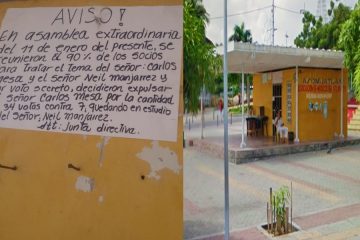 AVISO!
En asamblea extraordinaria
del 11 de enero del presente, se
reunieron el 90% de los socios
para Tratar el Tema del señor: Carlos
Mesa y el señor Neil manjarrez y
por voto secreto, decidieron expulsar
señor Carlos mesa por la cantidad
34 votos contra 7, quedando en estudio
el señor, Neil manjarrez.
Att: Junta directiva.